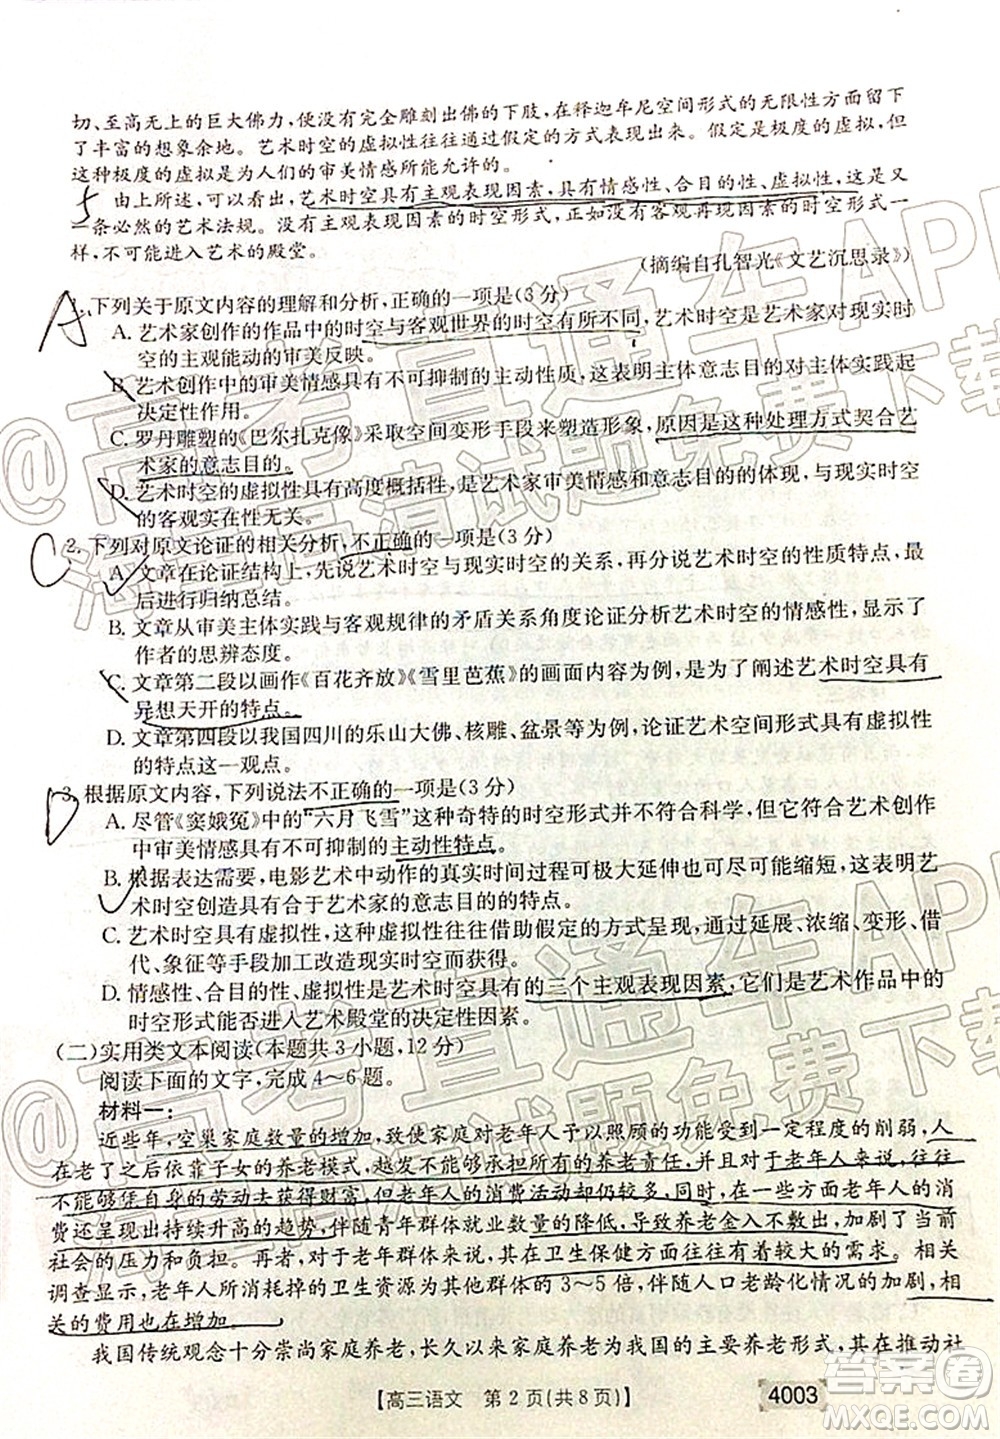 切、至高无上的巨大佛力,却没有完全雕刻出佛的下肢,在释迦牟尼空间形式的无限性方面留下
了丰富的想象余地。艺术时空的虚拟性往往通过假定的方式表现出来。假定是极度的虚拟,但
这种极度的虚拟是为人们的审美情感所能允许的。
由上所述,可以看出,艺术时空具有主观表现因素,具有情感性、合目的性、虚拟性,这是又
一条必然的艺术法规。没有主观表现因素的时空形式,正如没有客观再现因素的时空形式一
样,不可能进入艺术的殿堂。
(摘编自孔智光《文艺沉思录》)
A
1.下列关于原文内容的理解和分析,正确的一项是(3分)
A.艺术家创作的作品中的时空与客观世界的时空有所不同,艺术时空是艺术家对客观时
空的主观能动的审美反映。
B.艺术创作中的审美情感具有不可抑制的主动性质,这表明主体意志目的对主体情感起
决定性作用。
C.罗丹雕塑的《巴尔扎克像》采取空间变形手段来塑造形象,原因是这种处理方式契合艺
术家的意志目的。
D.艺术时空的虚拟性具有高度概括性,是艺术家审美情感和合目的的体现,与现实时空
的客观实在性无关。
C
2.下列对原文论证的相关分析,不正确的一项是(3分)
A.文章在论证结构上,先说艺术时空与现实时空的关系,再分说艺术时空的性质特点,最
后进行归纳总结。
B.文章从审美主体实践与客观规律的矛盾关系角度论证分析艺术时空的情感性,显示了
作者的思辨态度。
C.文章第二段以画作《百花齐放》《雪里芭蕉》的画面内容为例,是为了阐述艺术时空具有
异想天开的特点。
D.文章第四段以我国四川的乐山大佛、核雕、盆景等为例,论证艺术空间形式具有虚拟性
的特点这一观点。
D
3.根据原文内容,下列说法不正确的一项是(3分)
A.尽管《窦娥冤》中的“六月飞雪”这种奇特的时空形式并不符合科学,但契合了艺术创作
中审美情感具有不可抑制的主动性特点。
B.根据表达需要,电影艺术中动作的真实时间过程可极大延伸也可尽可能缩短,这表明艺
术时空创造具有合于艺术家的意志目的的特点。
C.艺术时空具有虚拟性,这种虚拟性往往借助假定的方式呈现,通过延展、浓缩、变形、借
代、象征等手段加工改造现实时空而获得。
D.情感性、合目的性、虚拟性是艺术时空具有的三个主观表现因素,它们是艺术作品中的
时空形式能否进入艺术殿堂的决定性因素。
(二)实用类文本阅读(本题共3小题,12分)
阅读下面的文字,完成4~6题。
材料一:
近些年,空巢家庭数量的增加,致使家庭对老年人予以照顾的功能受到一定程度的削弱,人
在老了之后依靠子女的养老模式,越发不能够承担所有的养老责任。而对于老年人来说,往往
不能够凭自身的劳动去获得财富,但老年人的消费活动却仍较多,且每一年老年人的消
费还呈现出持续升高的趋势,伴随青年群体就业数量的降低,导致养老金入不敷出,加剧了当前
社会的压力和负担。再者,对于老年群体来说,其在卫生保健方面往往有着较大的需求。有相关
调查显示:老年人所消耗掉的卫生资源为其他群体的3~5倍,伴随人口老龄化情况的加剧,相
关的费用也在增加。
我国传统观念十分崇尚家庭养老,长久以来家庭养老作为我国的主要养老形式,其在推动社
【高三语文 第2页(共8页)】
4003
@高考直通车APP
海量高清试题免费下载
@高考直通车APP
海量高清试题免费下载
答案圈
MXQE.COM